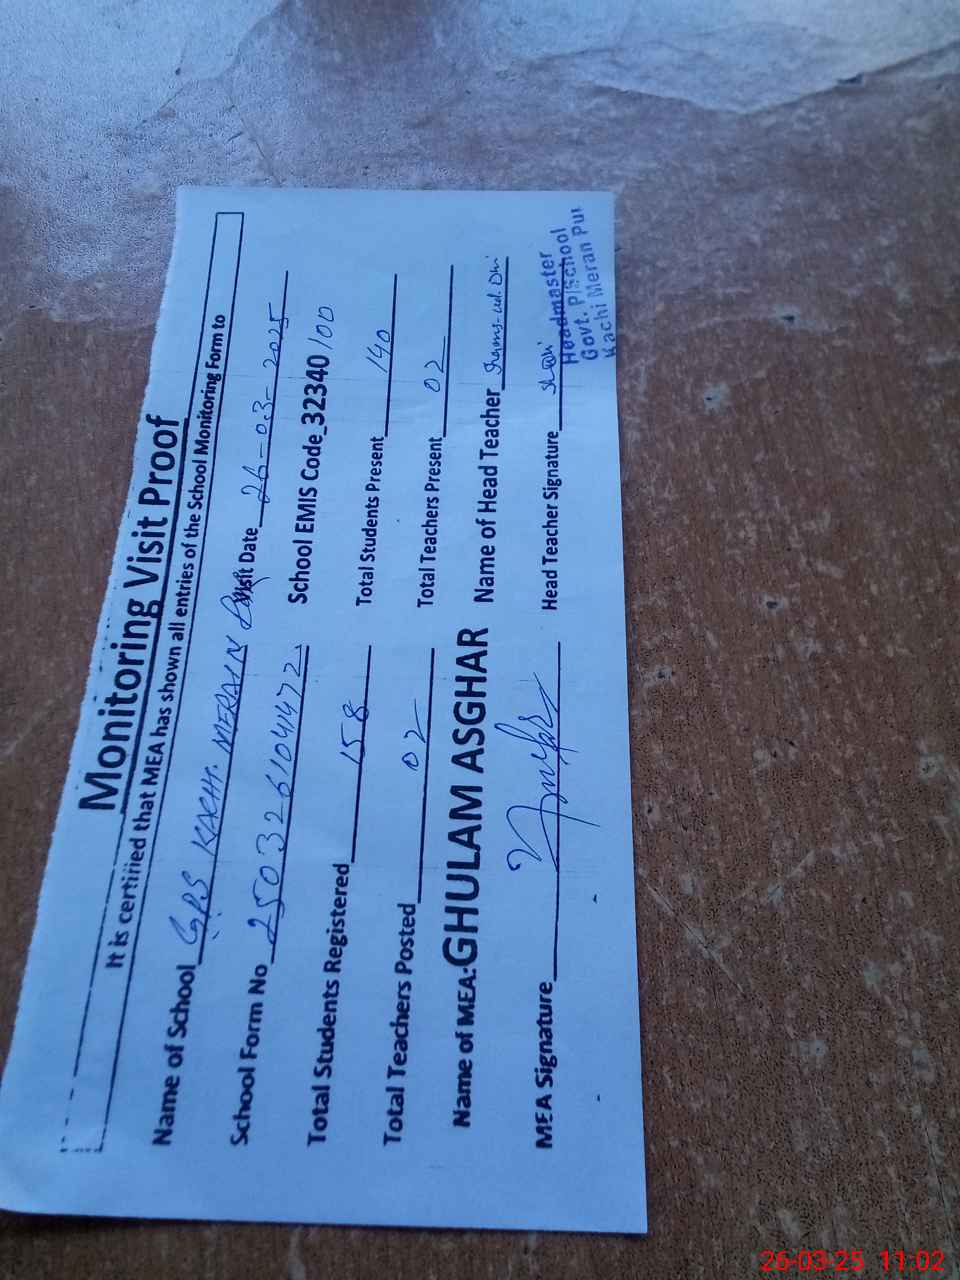 Monitoring Visit Proof
It is certified that MEA has shown all entries of the School Monitoring Form to
Name of School GPS KACHI. MERAIN Visit Date 26-03-2025
School Form No 2503261041472 School EMIS Code_32340100
Total Students Registered 158 Total Students Present 140
Total Teachers Posted 02 Total Teachers Present 02
Name of MEA:GHULAM ASGHAR Name of Head Teacher
MEA Signature Head Teacher Signature
Headmaster
Govt. P/School
Kachi Meran Pur
26-03-25 11:02